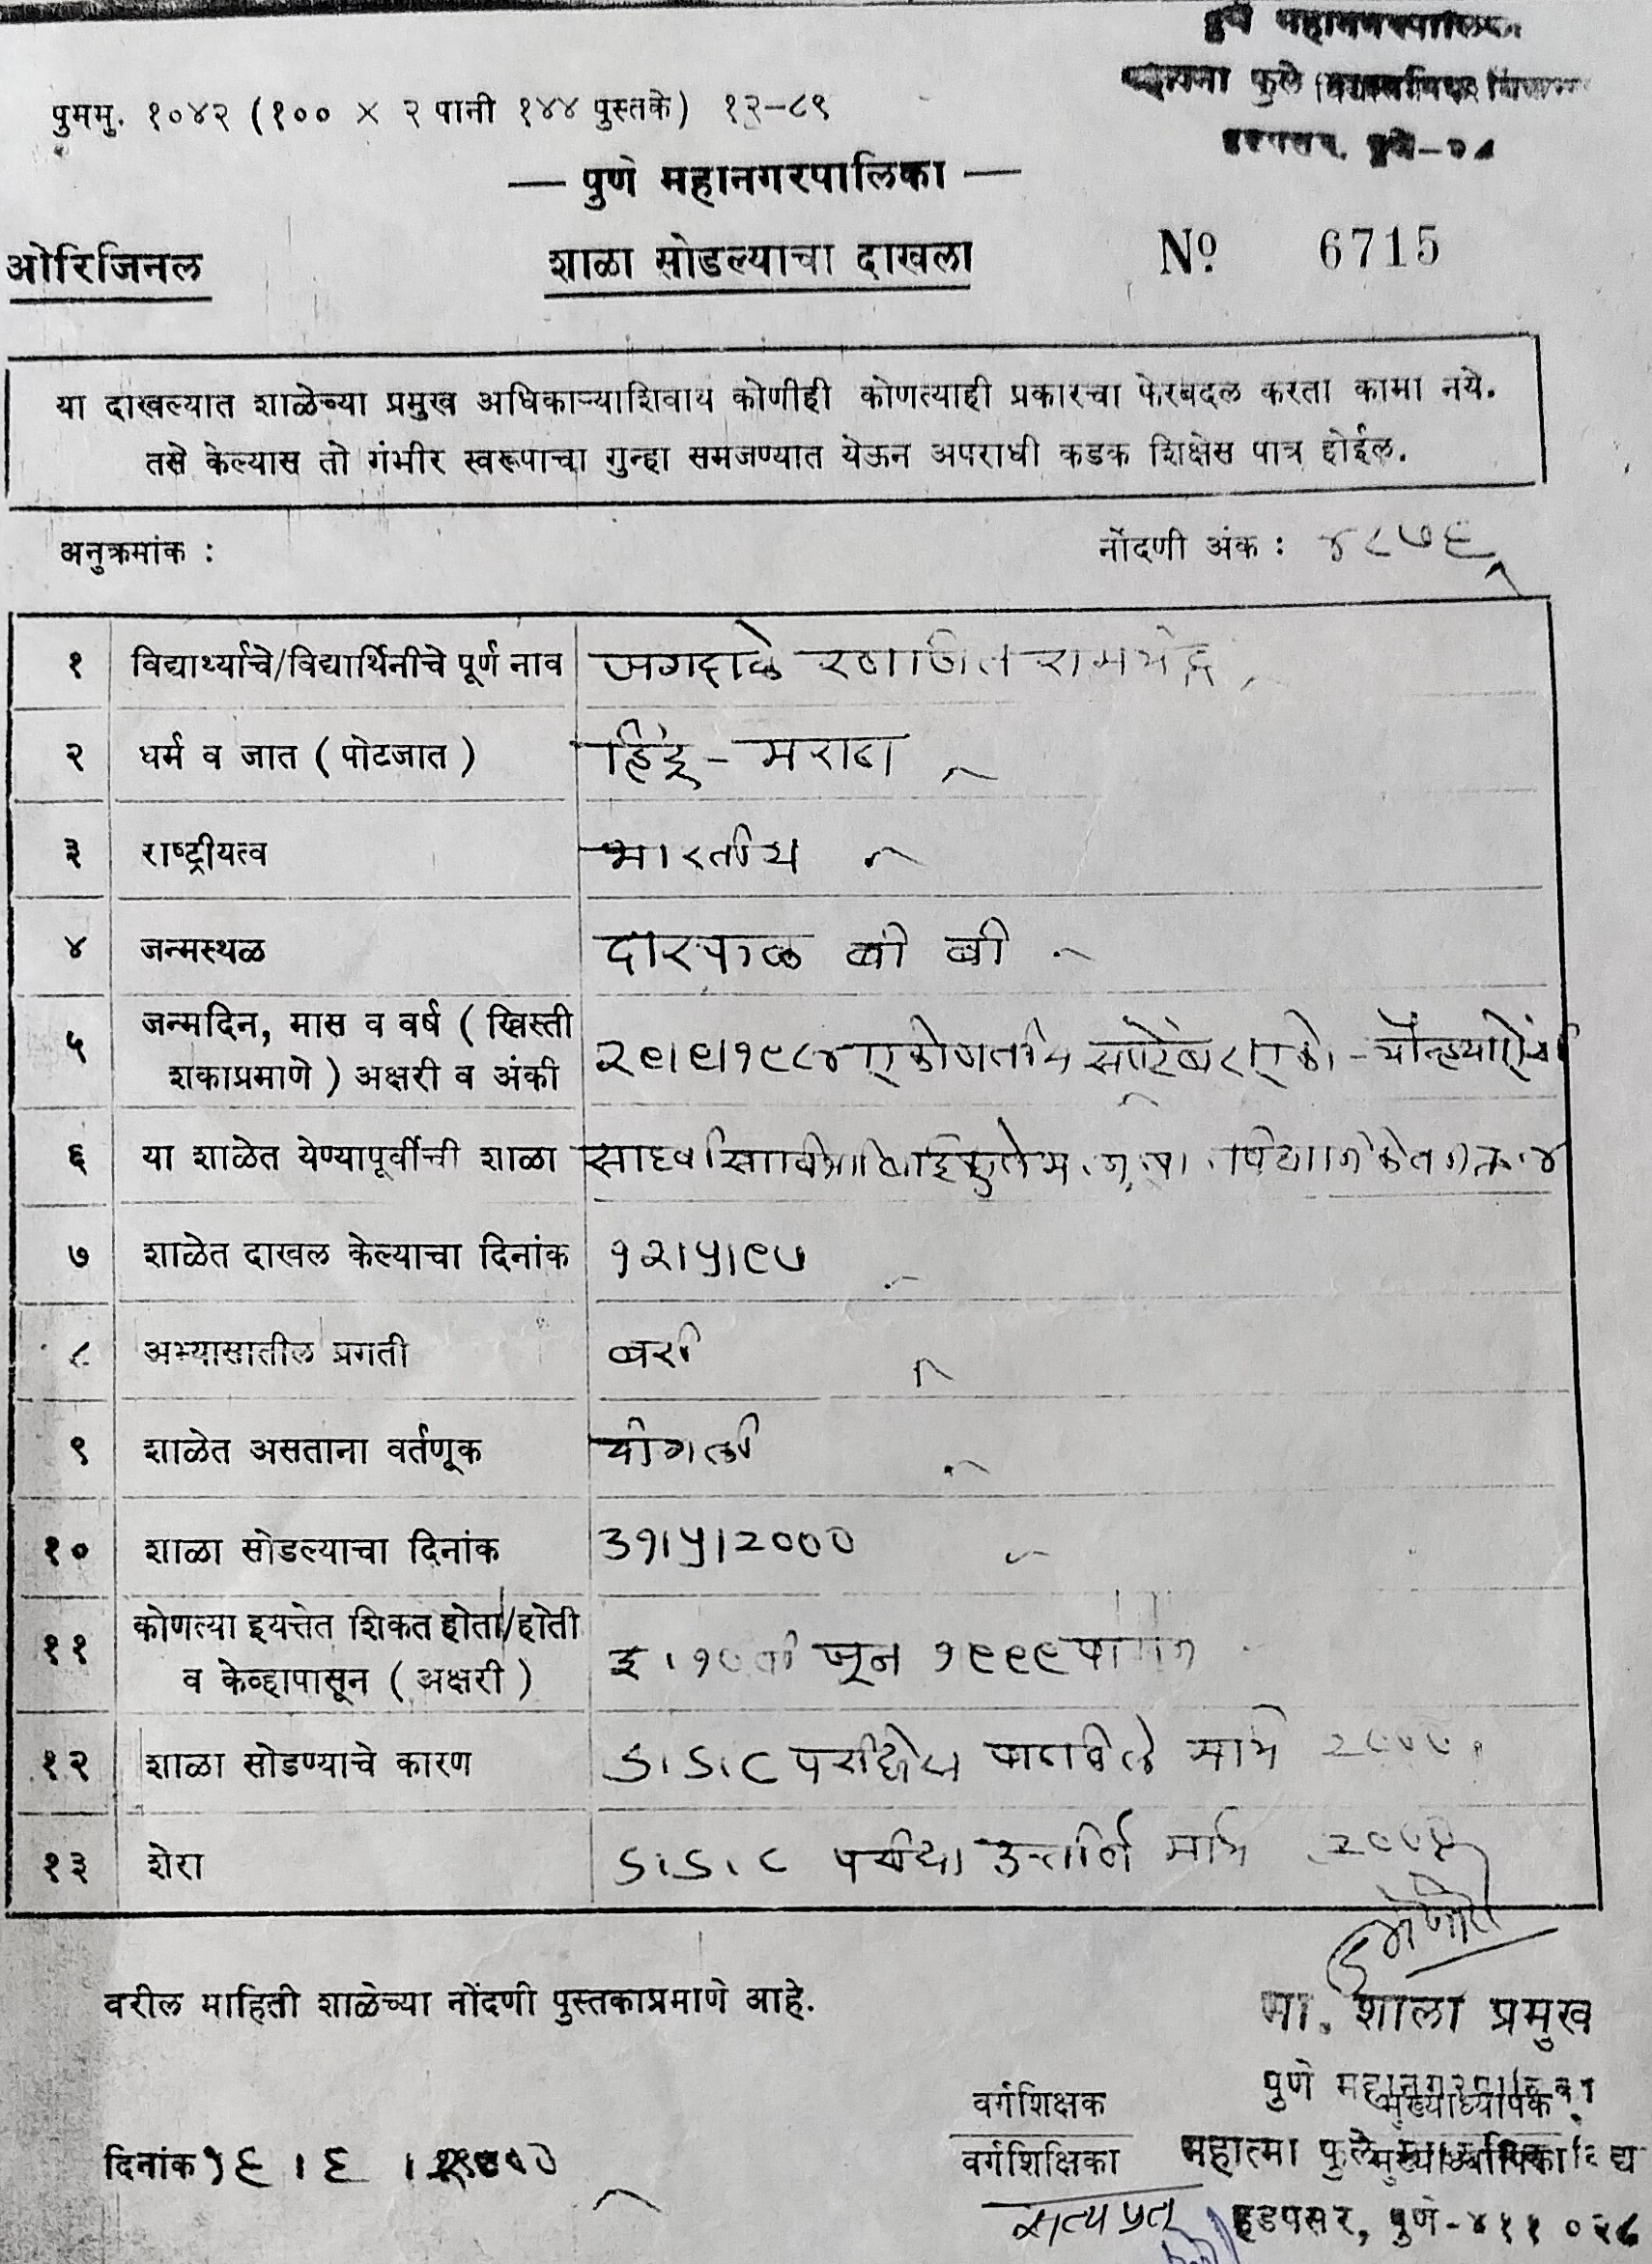 पुणे महानगरपालिका
महात्मा फुले माध्यमिक
हडपसर, पुणे-
पुममु. १०४२ (१०० × २ पानी १४४ पुस्तके) १२-८९
— पुणे महानगरपालिका —
ओरिजिनल शाळा सोडल्याचा दाखला No. 6715
या दाखल्यात शाळेच्या प्रमुख अधिकाऱ्याशिवाय कोणीही कोणत्याही प्रकारचा फेरबदल करता कामा नये.
तसे केल्यास तो गंभीर स्वरूपाचा गुन्हा समजण्यात येऊन अपराधी कडक शिक्षेस पात्र होईल.
अनुक्रमांक : नोंदणी अंक : ४८७६
१ विद्यार्थ्याचे/विद्यार्थिनीचे पूर्ण नाव जगदाळे रणजित रामचंद्र
२ धर्म व जात ( पोटजात ) हिंदू - मराठा
३ राष्ट्रीयत्व भारतीय
४ जन्मस्थळ बी बी
५ जन्मदिन, मास व वर्ष ( ख्रिस्ती २९।९।१९८४ एकोणतीस सप्टेंबर
शकाप्रमाणे ) अक्षरी व अंकी
६ या शाळेत येण्यापूर्वीची शाळा
७ शाळेत दाखल केल्याचा दिनांक १२।५।९७
८ अभ्यासातील प्रगती बरी
९ शाळेत असताना वर्तणूक चांगली
१० शाळा सोडल्याचा दिनांक ३१।५।२०००
११ कोणत्या इयत्तेत शिकत होता/होती इ. १० वी जून १९९९ पासून
व केव्हापासून ( अक्षरी )
१२ शाळा सोडण्याचे कारण S.S.C परीक्षेस पाठविले मार्च २०००
१३ शेरा S.S.C परीक्षा उत्तीर्ण मार्च २०००
वरील माहिती शाळेच्या नोंदणी पुस्तकाप्रमाणे आहे.
मा. शाला प्रमुख
पुणे महानगरपालिका
वर्गशिक्षक मुख्याध्यापक
दिनांक १६ । ६ । २०००
वर्गशिक्षिका महात्मा फुले मुख्याध्यापिका
सत्यप्रत हडपसर, पुणे-४११ ०२८